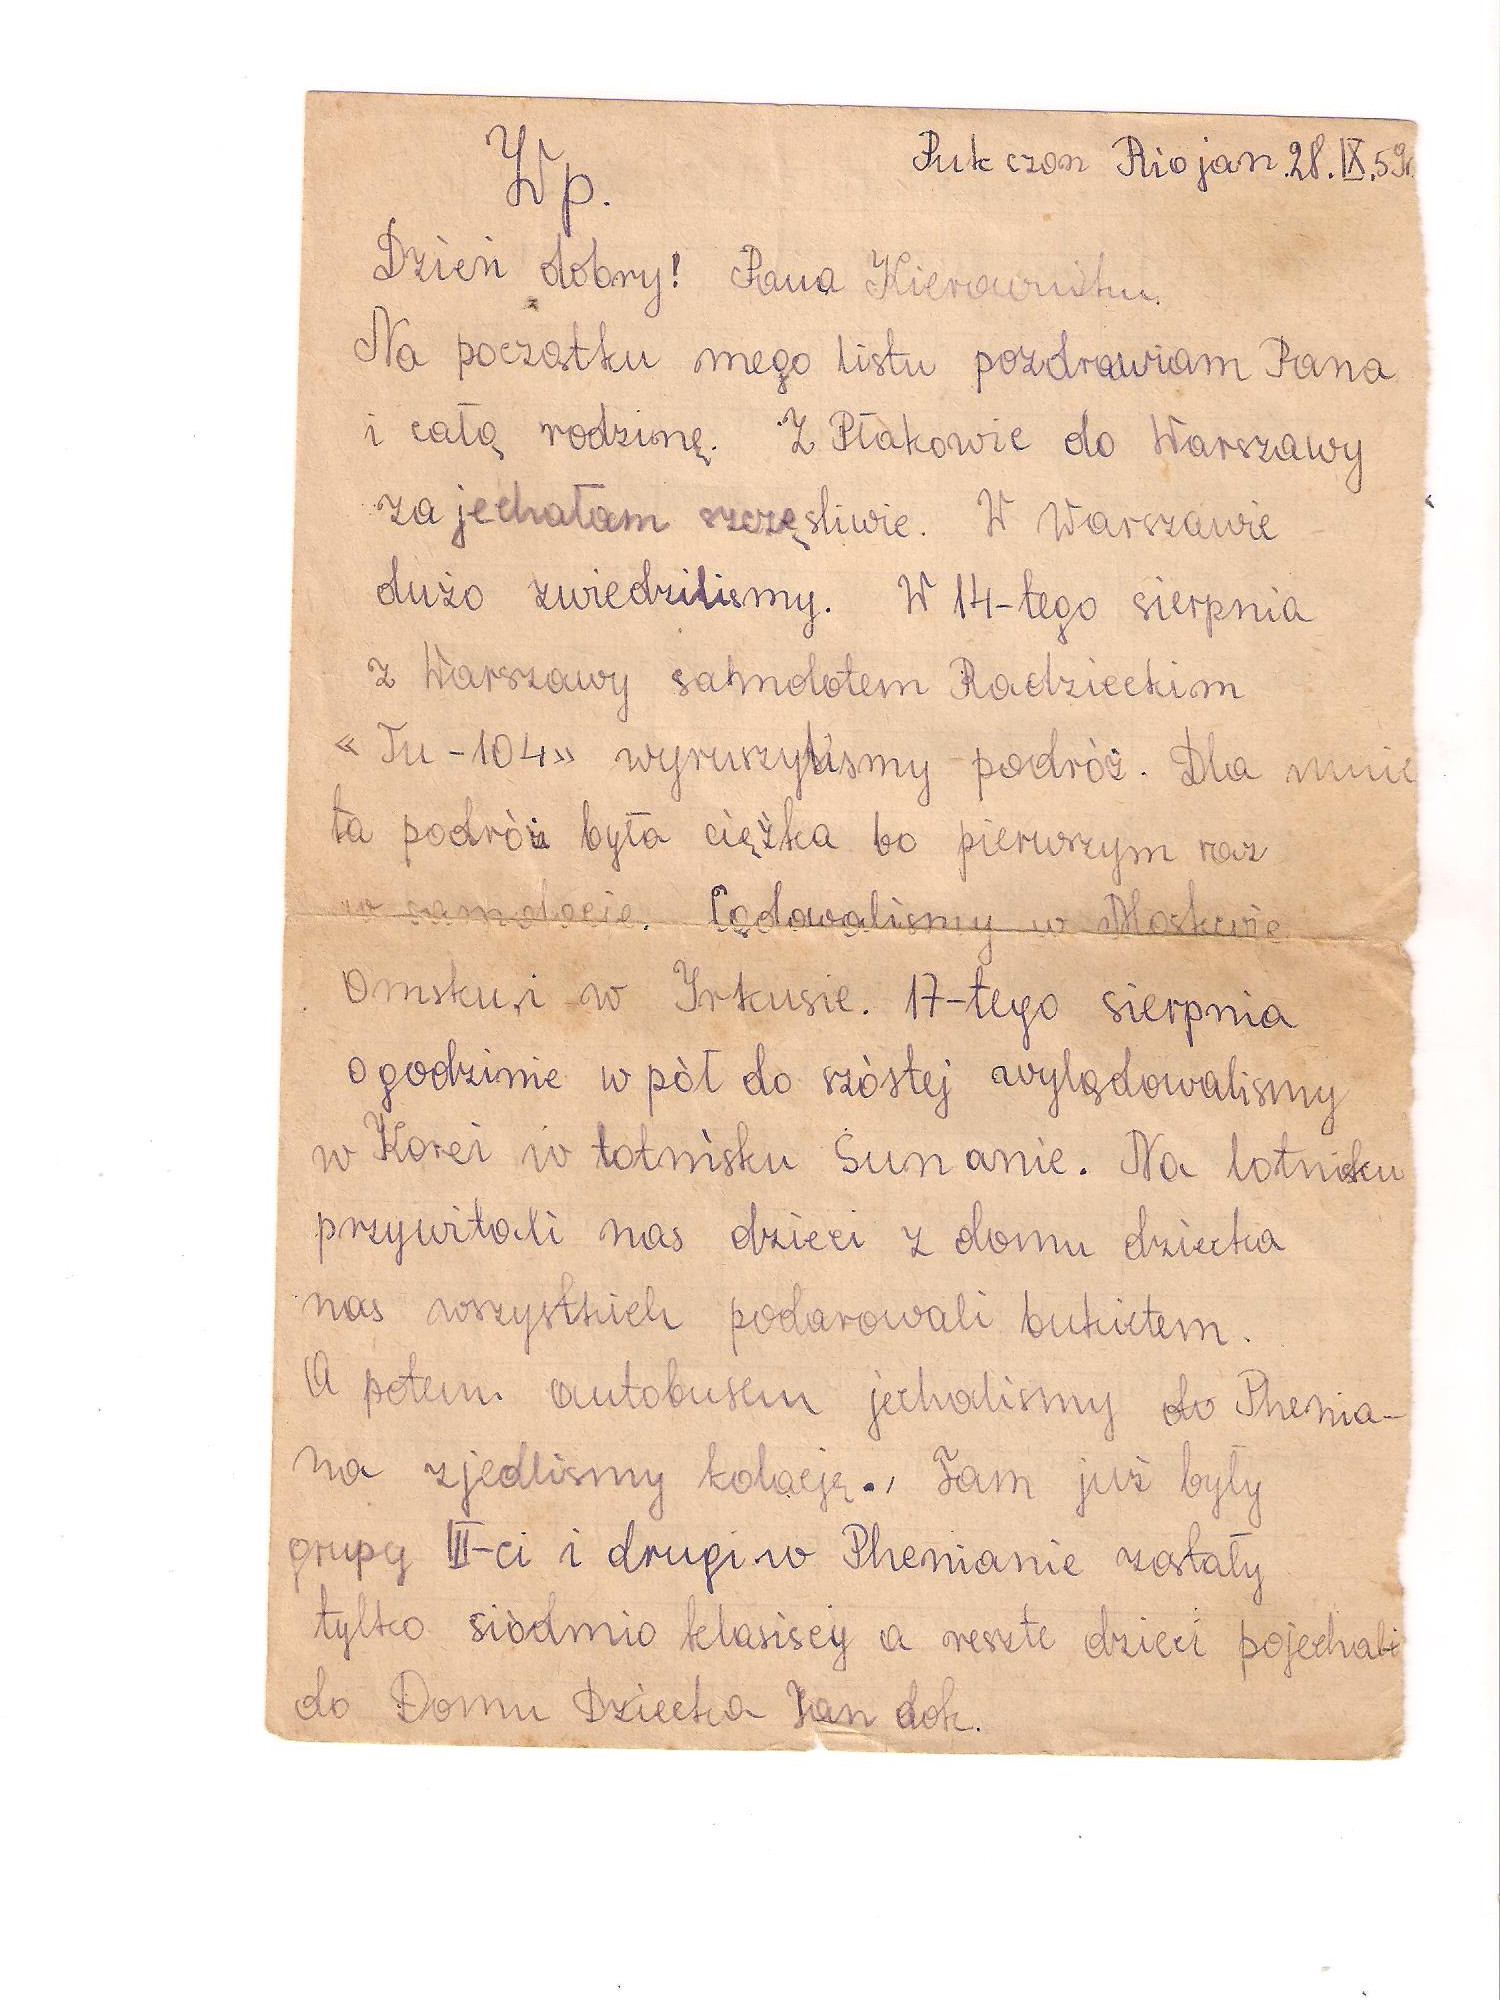 Wp.
Puk czon Riojan 28.IX.59r.
Dzień dobry! Pana Kierowniku.
Na początku mego listu pozdrawiam Pana
i całą rodzinę. Z Płakowic do Warszawy
zajechałam szczęsliwie. W Warszawie
dużo zwiedzilismy. W 14-tego sierpnia
z Warszawy samolotem Radzieckim
«Tu-104» wyruszylismy podróż. Dla mnie
ta podróż była ciężka bo pierwszym raz
w samolocie. Lądowalismy w Moskwie
Omsku, i w Irkusie. 17-tego sierpnia
o godzinie w pół do szóstej wylądowalismy
w Korei w lotnisku Sunanie. Na lotnisku
przywitali nas dzieci z domu dziecka
nas wszystkich podarowali bukietem.
A potem autobusem jechalismy do Phenia-
na zjedlismy kolację. Tam już były
grupy III-ci i drugi w Phenianie zostały
tylko siódmio klasiscy a reszte dzieci pojechali
do Domu Dziecka Jan dok.